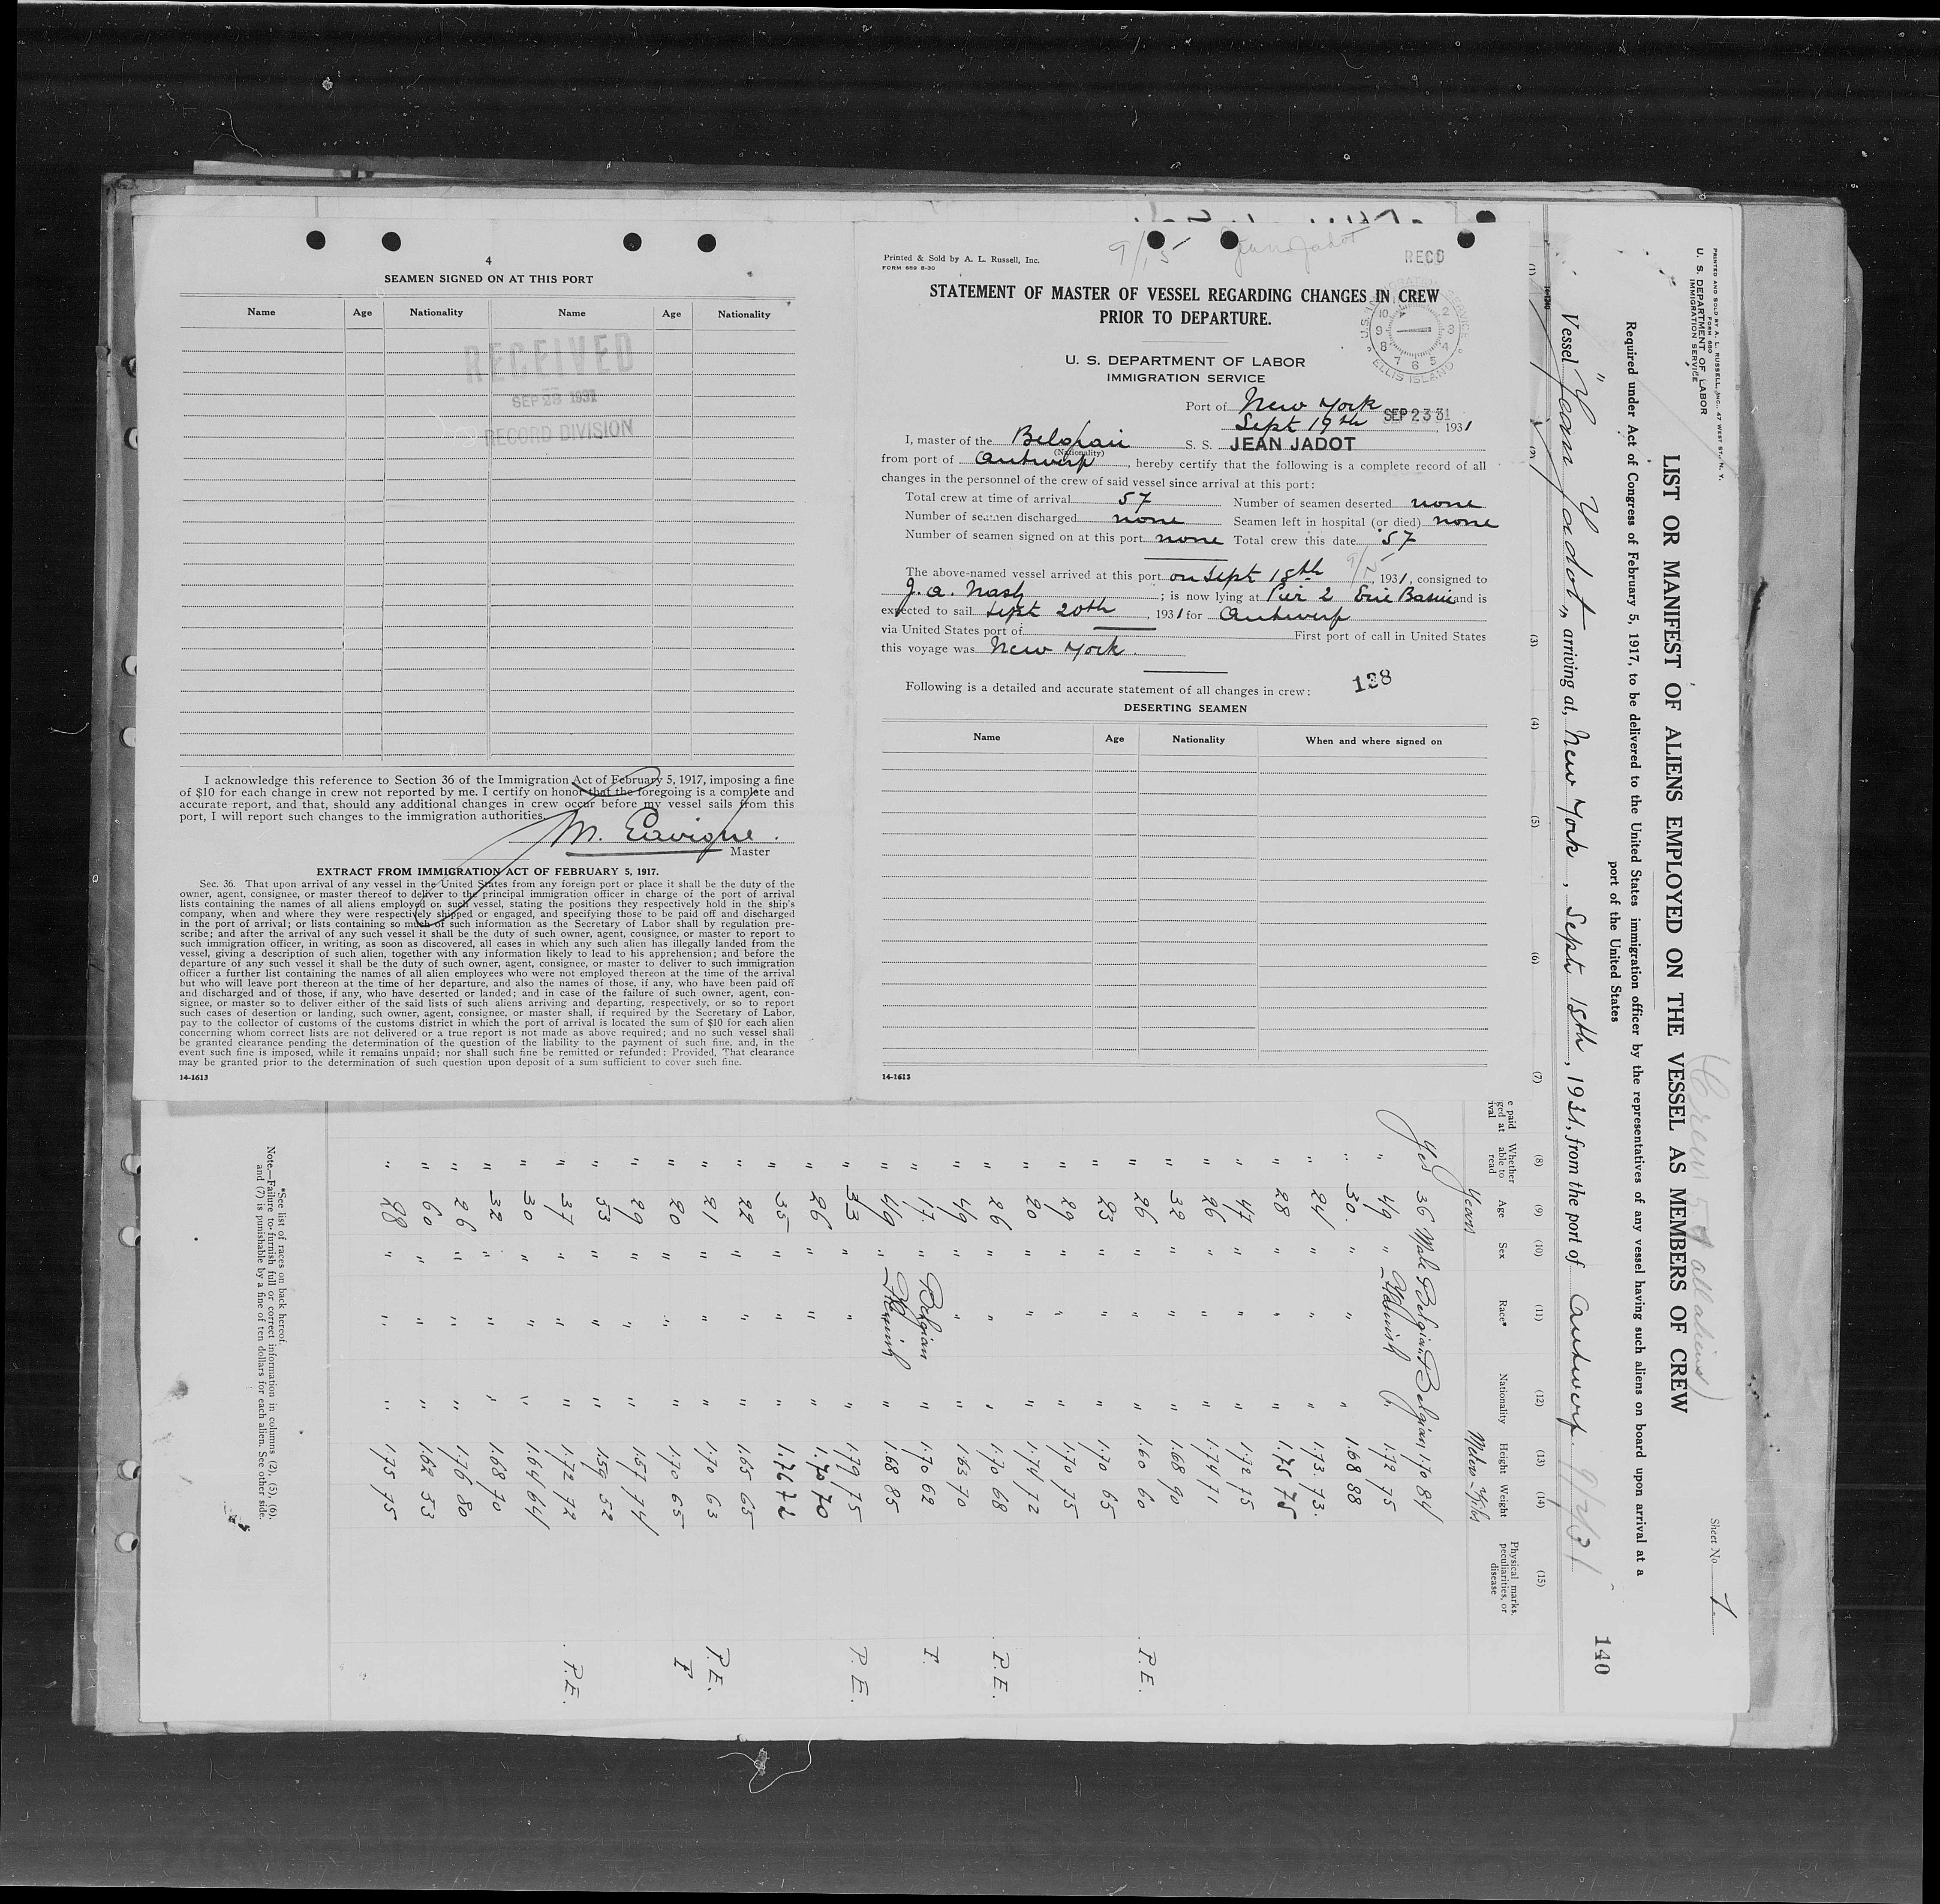 4
SEAMEN SIGNED ON AT THIS PORT
Name Age Nationality Name Age Nationality
RECEIVED
SEP 23 1931
RECORD DIVISION
I acknowledge this reference to Section 36 of the Immigration Act of February 5, 1917, imposing a fine
of $10 for each change in crew not reported by me. I certify on honor that the foregoing is a complete and
accurate report, and that, should any additional changes in crew occur before my vessel sails from this
port, I will report such changes to the immigration authorities.
M.
Master
EXTRACT FROM IMMIGRATION ACT OF FEBRUARY 5, 1917.
Sec. 36. That upon arrival of any vessel in the United States from any foreign port or place it shall be the duty of the
owner, agent, consignee, or master thereof to deliver to the principal immigration officer in charge of the port of arrival
lists containing the names of all aliens employed on such vessel, stating the positions they respectively hold in the ship's
company, when and where they were respectively shipped or engaged, and specifying those to be paid off and discharged
in the port of arrival; or lists containing so much of such information as the Secretary of Labor shall by regulation pre-
scribe; and after the arrival of any such vessel it shall be the duty of such owner, agent, consignee, or master to report to
such immigration officer, in writing, as soon as discovered, all cases in which any such alien has illegally landed from the
vessel, giving a description of such alien, together with any information likely to lead to his apprehension; and before the
departure of any such vessel it shall be the duty of such owner, agent, consignee, or master to deliver to such immigration
officer a further list containing the names of all alien employees who were not employed thereon at the time of the arrival
but who will leave port thereon at the time of her departure, and also the names of those, if any, who have been paid off
and discharged and of those, if any, who have deserted or landed; and in case of the failure of such owner, agent, con-
signee, or master so to deliver either of the said lists of such aliens arriving and departing, respectively, or so to report
such cases of desertion or landing, such owner, agent, consignee, or master shall, if required by the Secretary of Labor,
pay to the collector of customs of the customs district in which the port of arrival is located the sum of $10 for each alien
concerning whom correct lists are not delivered or a true report is not made as above required; and no such vessel shall
be granted clearance pending the determination of the question of the liability to the payment of such fine, and, in the
event such fine is imposed, while it remains unpaid; nor shall such fine be remitted or refunded: Provided, That clearance
may be granted prior to the determination of such question upon deposit of a sum sufficient to cover such fine.
14-1613
9/15 Jean Jadot
Printed & Sold by A. L. Russell, Inc.
FORM 689 5-30
RECD
STATEMENT OF MASTER OF VESSEL REGARDING CHANGES IN CREW
PRIOR TO DEPARTURE.
U. S. DEPARTMENT OF LABOR
IMMIGRATION SERVICE
ELLIS ISLAND
Port of New York
SEP 23 31
Sept 19th, 1931
I, master of the Belgian S. S. JEAN JADOT
(Nationality)
from port of Antwerp, hereby certify that the following is a complete record of all
changes in the personnel of the crew of said vessel since arrival at this port:
Total crew at time of arrival 57 Number of seamen deserted none
Number of seamen discharged none Seamen left in hospital (or died) none
Number of seamen signed on at this port none Total crew this date 57
9/15
The above-named vessel arrived at this port on Sept 15th, 1931, consigned to
J. A. Nash; is now lying at Pier 2 Erie Basin and is
expected to sail Sept 20th, 1931 for Antwerp
via United States port of First port of call in United States
this voyage was New York.
138
Following is a detailed and accurate statement of all changes in crew:
DESERTING SEAMEN
Name Age Nationality When and where signed on
14-1613
PRINTED AND SOLD BY A. L. RUSSELL, INC., 47 WEST ST., N. Y.
FORM 680
U. S. DEPARTMENT OF LABOR
IMMIGRATION SERVICE
Sheet No. 1
(Crew 57 all aliens)
LIST OR MANIFEST OF ALIENS EMPLOYED ON THE VESSEL AS MEMBERS OF CREW
Required under Act of Congress of February 5, 1917, to be delivered to the United States immigration officer by the representatives of any vessel having such aliens on board upon arrival at a
port of the United States
140
Vessel "Jean Jadot", arriving at, New York, Sept 15th, 1931, from the port of Antwerp. 9/2/31
(1) (2) (3) (4) (5) (6) (7) (8) (9) (10) (11) (12) (13) (14) (15)
e paid
ged at
ival
Whether
able to
read
Age Sex Race* Nationality Height Weight
Physical marks,
peculiarities, or
disease
Years Meters Kilos
Yes 36 Male Belgian Belgian 1.70 84
" 49 " Flemish " 1.72 75
" 30. " " " 1.68 88
" 24 " " " 1.73. 73.
" 28 " " " 1.75 75
" 47 " " " 1.72 75
" 26 " " " 1.74 71
" 32 " " " 1.68 90
" 26 " " " 1.60 60 P.E.
" 23 " " " 1.70 65
" 29 " " " 1.70 75
" 20 " " " 1.74 72
" 26 " " " 1.70 68 P.E.
" 49 " " " 1.63 70
" 17. " Belgian " 1.70 62 T.
" 49 " Flemish " 1.68 85
" 33 " " " 1.79 75 P.E.
" 26 " " " 1.70 70
" 35 " " " 1.76 72
" 22 " " " 1.65 65
" 21 " " " 1.70 63 P.E.
" 20 " " " 1.70 65 T
" 29 " " " 1.57 74
" 53 " " " 1.59 52
" 37 " " " 1.72 72 P.E.
" 30 " " " 1.64 64
" 32 " " " 1.68 70
" 26 " " " 1.76 80
" 60 " " " 1.62 53
" 28 " " " 1.75 75
*See list of races on back hereof.
Note.—Failure to furnish full or correct information in columns (2), (5), (6),
and (7) is punishable by a fine of ten dollars for each alien. See other side.